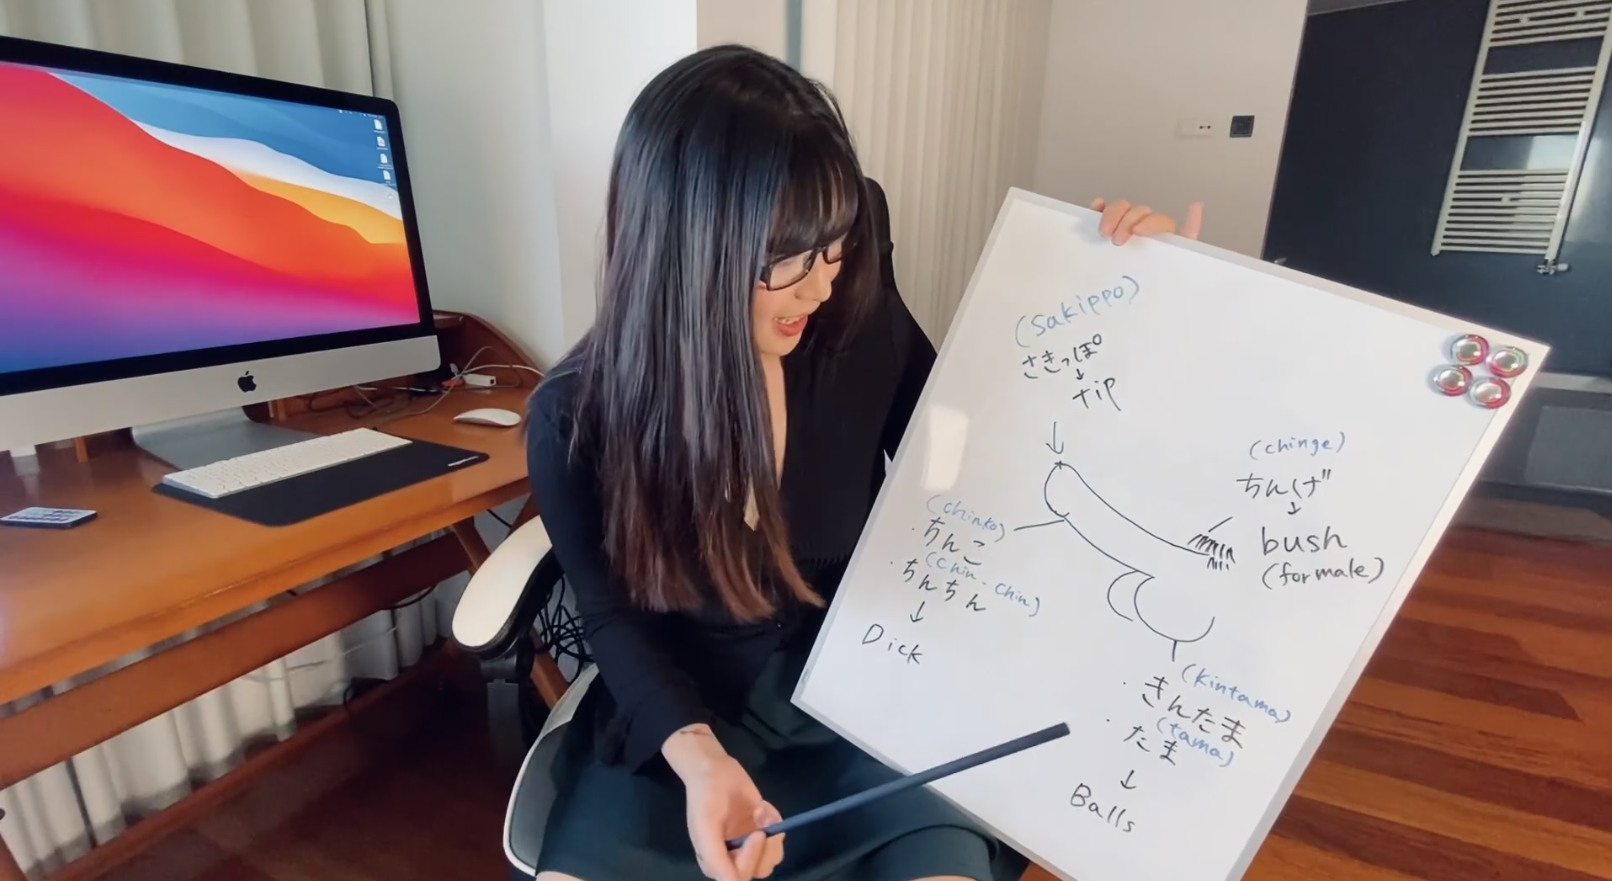 (sakippo)
さきっぽ
↓
tip
↓
(chinge)
ちんげ
↓
bush
(for male)
(chinko)
・ちんこ
(chin-chin)
・ちんちん
↓
Dick
(kintama)
・きんたま
(tama)
・たま
↓
Balls